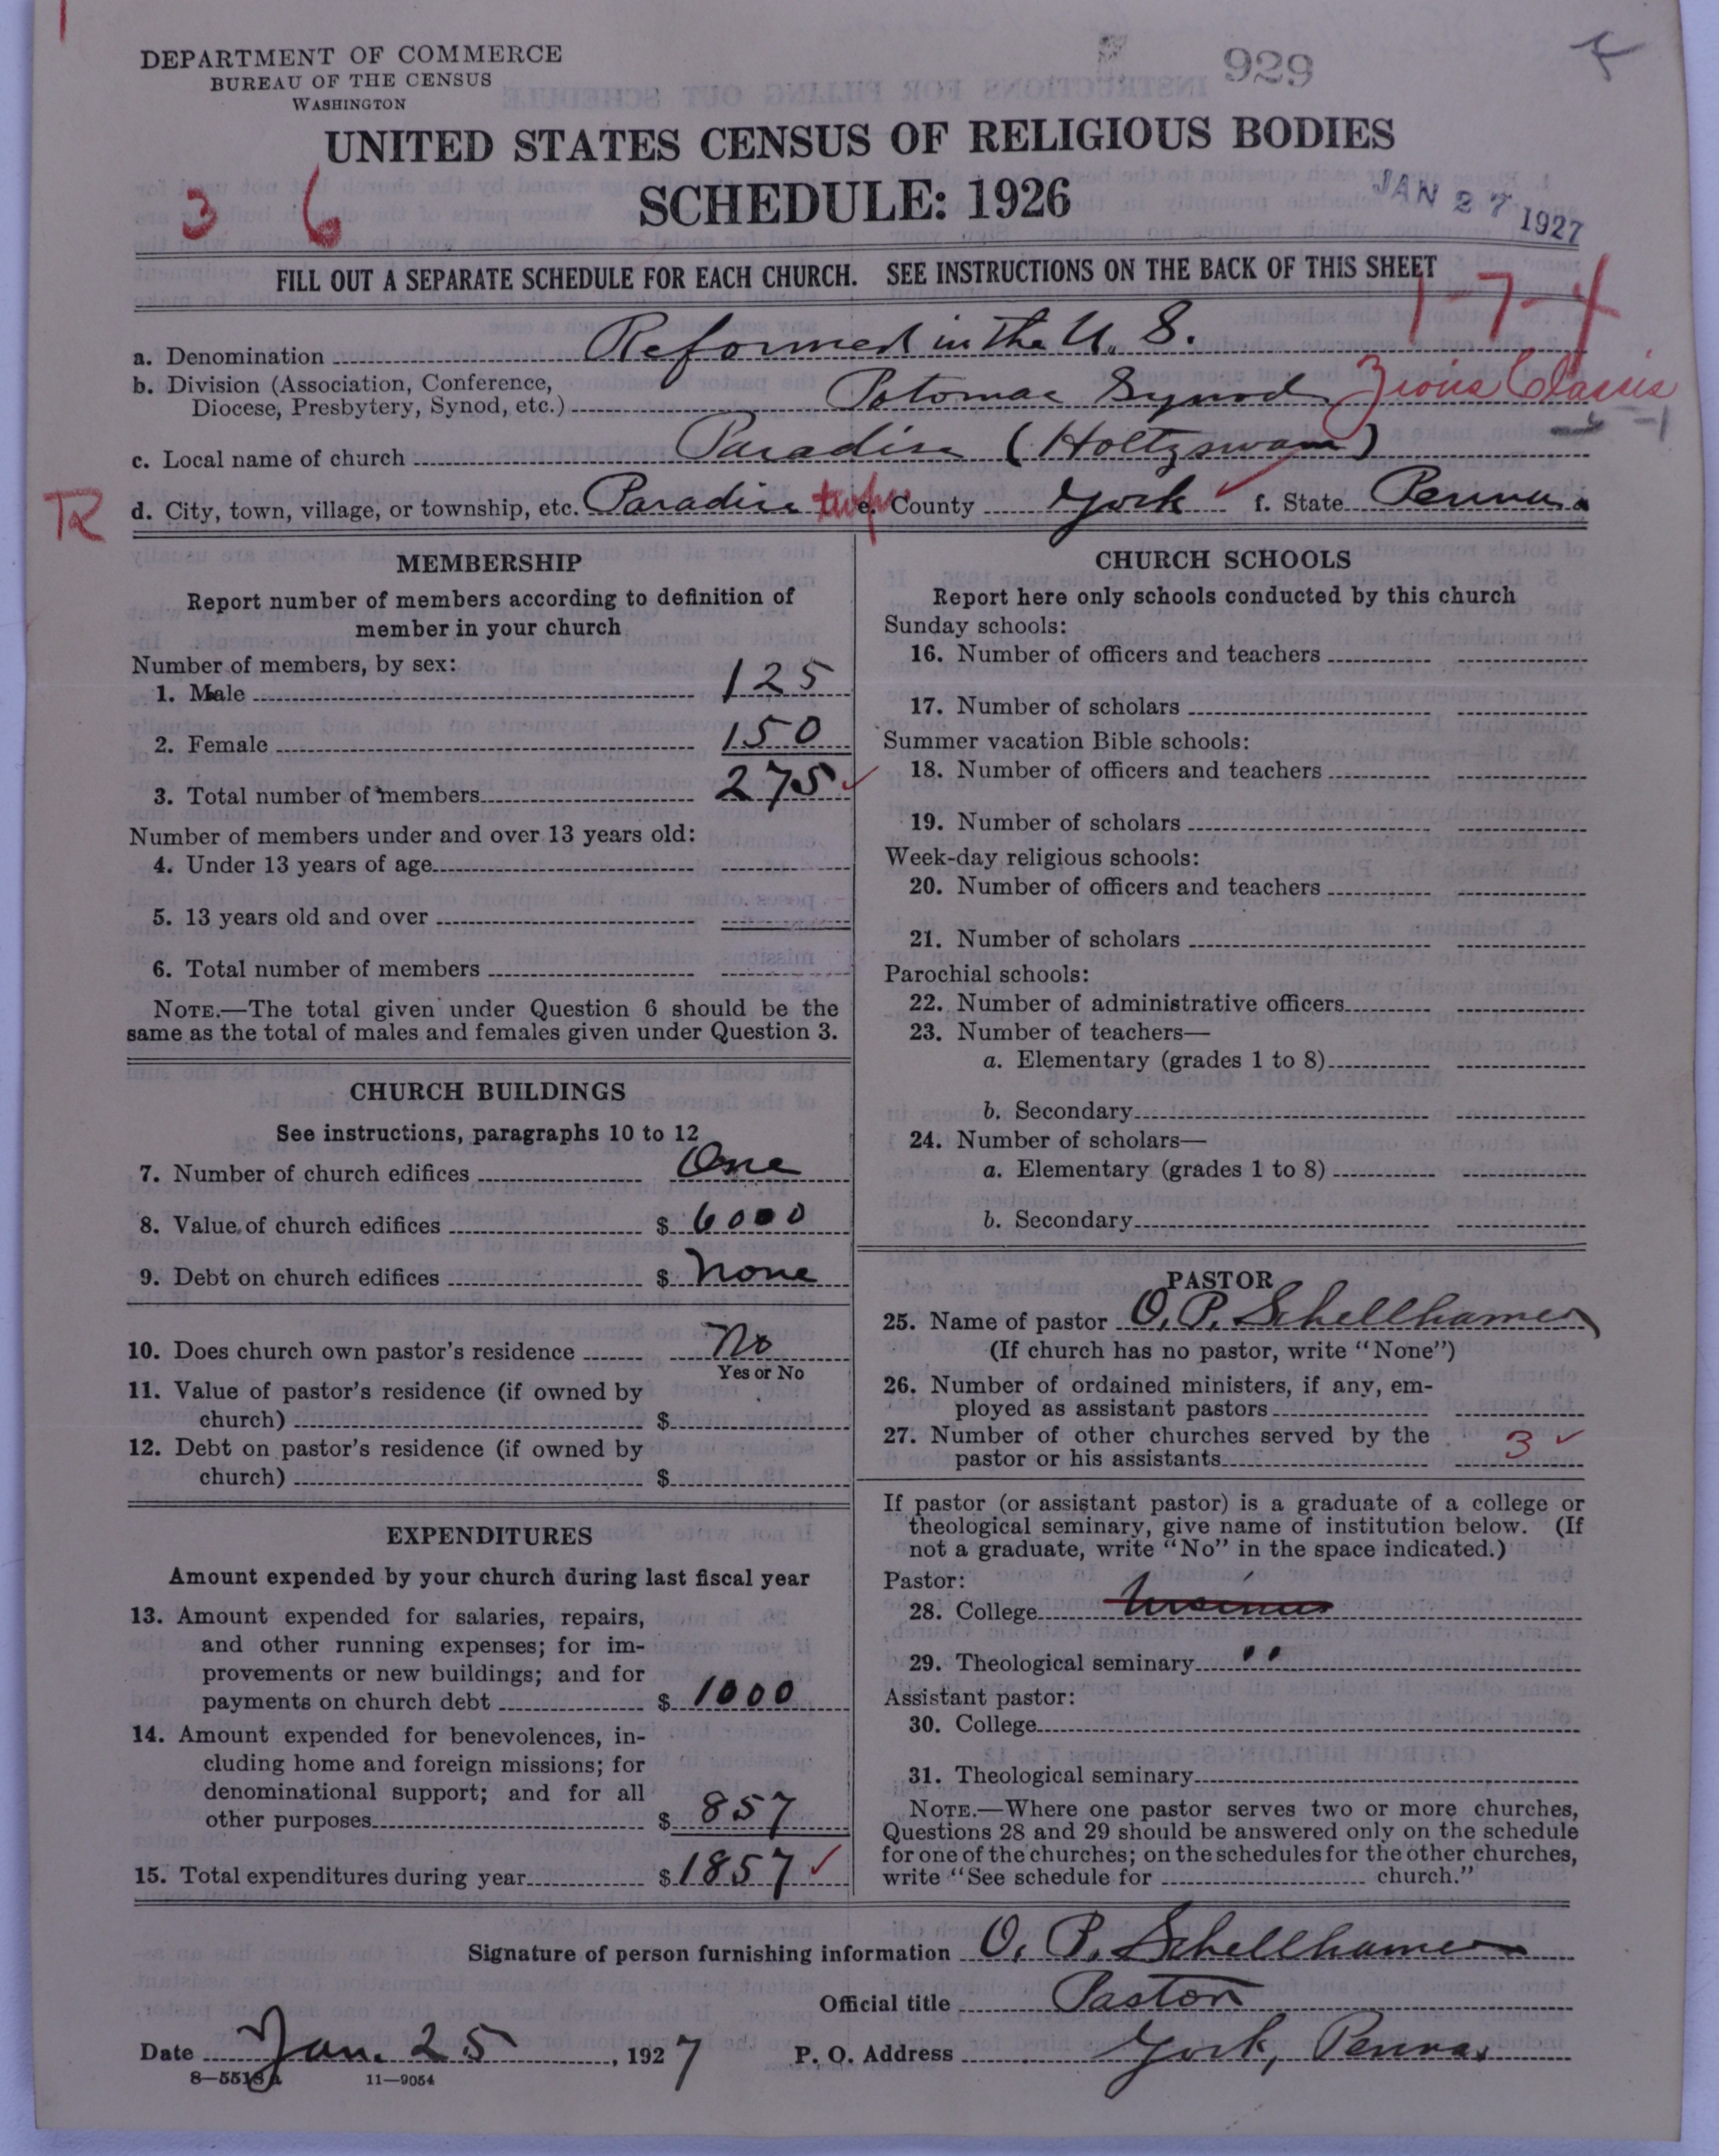 DEPARTMENT OF COMMERCE
BUREAU OF THE CENSUS
WASHINGTON
929
UNITED STATES CENSUS OF RELIGIOUS BODIES
SCHEDULE: 1926
3 6
JAN 27 1927
FILL OUT A SEPARATE SCHEDULE FOR EACH CHURCH. SEE INSTRUCTIONS ON THE BACK OF THIS SHEET
1-7-4
a. Denomination Reformed in the U. S.
b. Division (Association, Conference,
Diocese, Presbytery, Synod, etc.) Potomac Synod Zions Classis
c. Local name of church Paradise (Holtzswam)
R d. City, town, village, or township, etc. Paradise twp e. County York f. State Penna.
MEMBERSHIP
Report number of members according to definition of
member in your church
Number of members, by sex:
1. Male 125
2. Female 150
3. Total number of members 275
Number of members under and over 13 years old:
4. Under 13 years of age
5. 13 years old and over
6. Total number of members
NOTE.—The total given under Question 6 should be the
same as the total of males and females given under Question 3.
CHURCH BUILDINGS
See instructions, paragraphs 10 to 12
7. Number of church edifices One
8. Value of church edifices $ 6000
9. Debt on church edifices $ None
10. Does church own pastor's residence No
Yes or No
11. Value of pastor's residence (if owned by
church) $
12. Debt on pastor's residence (if owned by
church) $
EXPENDITURES
Amount expended by your church during last fiscal year
13. Amount expended for salaries, repairs,
and other running expenses; for im-
provements or new buildings; and for
payments on church debt $ 1000
14. Amount expended for benevolences, in-
cluding home and foreign missions; for
denominational support; and for all
other purposes $ 857
15. Total expenditures during year $ 1857
CHURCH SCHOOLS
Report here only schools conducted by this church
Sunday schools:
16. Number of officers and teachers
17. Number of scholars
Summer vacation Bible schools:
18. Number of officers and teachers
19. Number of scholars
Week-day religious schools:
20. Number of officers and teachers
21. Number of scholars
Parochial schools:
22. Number of administrative officers
23. Number of teachers—
a. Elementary (grades 1 to 8)
b. Secondary
24. Number of scholars—
a. Elementary (grades 1 to 8)
b. Secondary
PASTOR
25. Name of pastor O. P. Schellhamer
(If church has no pastor, write "None")
26. Number of ordained ministers, if any, em-
ployed as assistant pastors
27. Number of other churches served by the
pastor or his assistants 3
If pastor (or assistant pastor) is a graduate of a college or
theological seminary, give name of institution below. (If
not a graduate, write "No" in the space indicated.)
Pastor:
28. College Ursinus
29. Theological seminary "
Assistant pastor:
30. College
31. Theological seminary
NOTE.—Where one pastor serves two or more churches,
Questions 28 and 29 should be answered only on the schedule
for one of the churches; on the schedules for the other churches,
write "See schedule for church."
Signature of person furnishing information O. P. Schellhamer
Official title Pastor
Date Jan. 25, 1927 P. O. Address York, Penna.
8—5518a 11—9054